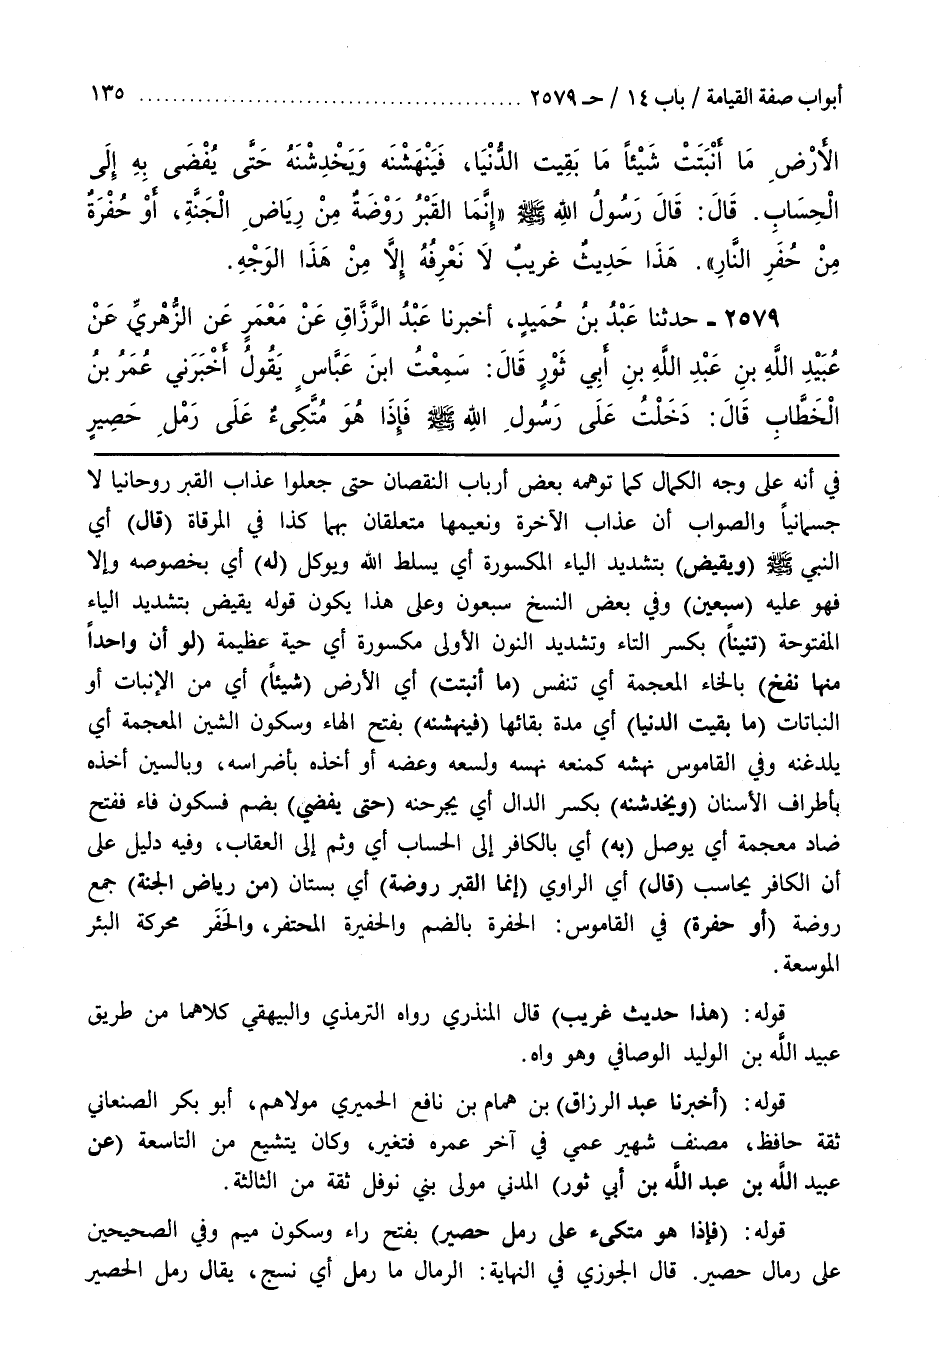 أبواب صفة القيامة / باب ١٤ / حـ ٢٥٧٩ ........................................ ١٣٥
الأَرْضِ مَا أَنْبَتَتْ شَيْئاً مَا بَقِيت الدُّنْيَا، فَيَنْهَشْنَه وَيَخْدِشْنَهُ حَتَّى يُفْضَى بِهِ إِلَى
الْحِسَابِ. قَالَ: قَالَ رَسُولُ اللهِ ﷺ «إِنَّمَا القَبْرُ رَوْضَةٌ مِنْ رِيَاضِ الْجَنَّةِ، أَوْ حُفْرَةٌ
مِنْ حُفَرِ النَّارِ». هَذَا حَدِيثٌ غريبٌ لَا نَعْرِفُهُ إِلَّا مِنْ هَذَا الوَجْهِ.
٢٥٧٩ ـ حدثنا عَبْدُ بنُ حُمَيدٍ، أخبرنا عَبْدُ الرَّزَّاقِ عَنْ مَعْمَرٍ عَن الزُّهْرِيِّ عَنْ
عُبَيْدِ اللَّهِ بنِ عَبْدِ اللَّهِ بنِ أَبِي ثَوْرٍ قَالَ: سَمِعْتُ ابنَ عَبَّاسٍ يَقُولُ أَخْبَرَني عُمَرُ بنُ
الْخَطَّابِ قَالَ: دَخَلْتُ عَلَى رَسُولِ اللهِ ﷺ فَإِذَا هُوَ مُتَّكِىءٌ عَلَى رَمْلِ حَصِيرٍ
في أنه على وجه الكمال كما توهمه بعض أرباب النقصان حتى جعلوا عذاب القبر روحانيا لا
جسمانياً والصواب أن عذاب الآخرة ونعيمها متعلقان بهما كذا في المرقاة (قال) أي
النبي ﷺ (ويقيض) بتشديد الياء المكسورة أي يسلط الله ويوكل (له) أي بخصوصه وإلا
فهو عليه (سبعين) وفي بعض النسخ سبعون وعلى هذا يكون قوله يقيض بتشديد الياء
المفتوحة (تنيناً) بكسر التاء وتشديد النون الأولى مكسورة أي حية عظيمة (لو أن واحداً
منها نفخ) بالخاء المعجمة أي تنفس (ما أنبتت) أي الأرض (شيئاً) أي من الإنبات أو
النباتات (ما بقيت الدنيا) أي مدة بقائها (فينهشنه) بفتح الهاء وسكون الشين المعجمة أي
يلدغنه وفي القاموس نهشه كمنعه نهسه ولسعه وعضه أو أخذه بأضراسه، وبالسين أخذه
بأطراف الأسنان (ويخدشنه) بكسر الدال أي يجرحنه (حتى يفضي) بضم فسكون فاء ففتح
ضاد معجمة أي يوصل (به) أي بالكافر إلى الحساب أي وثم إلى العقاب، وفيه دليل على
أن الكافر يحاسب (قال) أي الراوي (إنما القبر روضة) أي بستان (من رياض الجنة) جمع
روضة (أو حفرة) في القاموس: الحفرة بالضم والحفيرة المحتفر، والحَفَر محركة البئر
الموسعة.
قوله: (هذا حديث غريب) قال المنذري رواه الترمذي والبيهقي كلاهما من طريق
عبيد اللَّه بن الوليد الوصافي وهو واه.
قوله: (أخبرنا عبد الرزاق) بن همام بن نافع الحميري مولاهم، أبو بكر الصنعاني
ثقة حافظ، مصنف شهير عمي في آخر عمره فتغير، وكان يتشيع من التاسعة (عن
عبيد اللَّه بن عبد اللَّه بن أبي ثور) المدني مولى بني نوفل ثقة من الثالثة.
قوله: (فإذا هو متكىء على رمل حصير) بفتح راء وسكون ميم وفي الصحيحين
على رمال حصير. قال الجوزي في النهاية: الرمال ما رمل أي نسج، يقال رمل الحصير